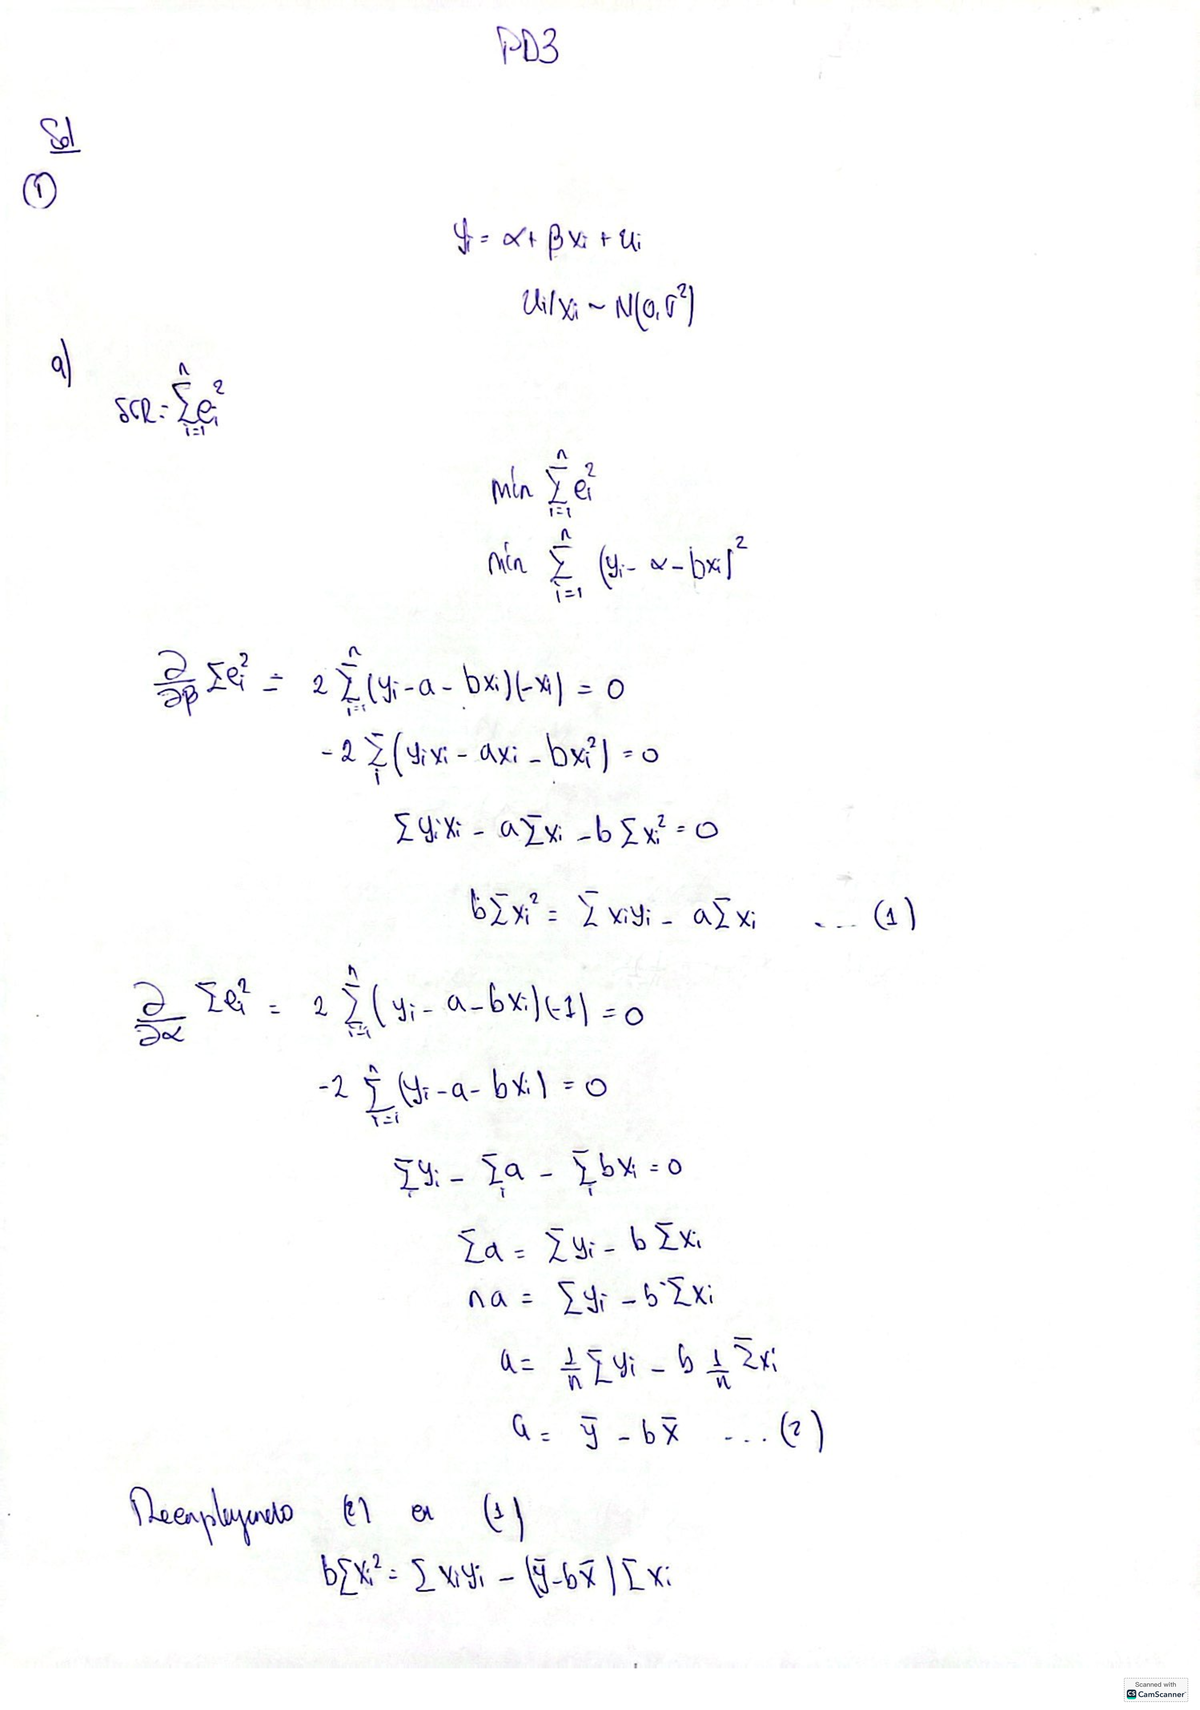 PD3
Sol
①
yi = α + βxi + ui
ui/xi ~ N(0, σ²)
a)
SCR = ∑_{i=1}^{n} ei²
mín ∑_{i=1}^{n} ei²
mín ∑_{i=1}^{n} (yi - α - bxi)²
∂/∂β ∑ei² = 2 ∑_{i=1}^{n} (yi - a - bxi)(-xi) = 0
-2 ∑_i (yixi - axi - bxi²) = 0
∑yixi - a∑xi - b∑xi² = 0
b∑xi² = ∑xiyi - a∑xi ... (1)
∂/∂α ∑ei² = 2 ∑_{i=i}^{n} (yi - a - bxi)(-1) = 0
-2 ∑_{i=i}^{n} (yi - a - bxi) = 0
∑_i yi - ∑_i a - ∑_i bxi = 0
∑a = ∑yi - b∑xi
na = ∑yi - b∑xi
a = 1/n ∑yi - b 1/n ∑xi
a = ȳ - bx̄ ... (2)
Reemplazando (2) en (1)
b∑xi² = ∑xiyi - (ȳ - bx̄)∑xi
Scanned with
CS CamScanner